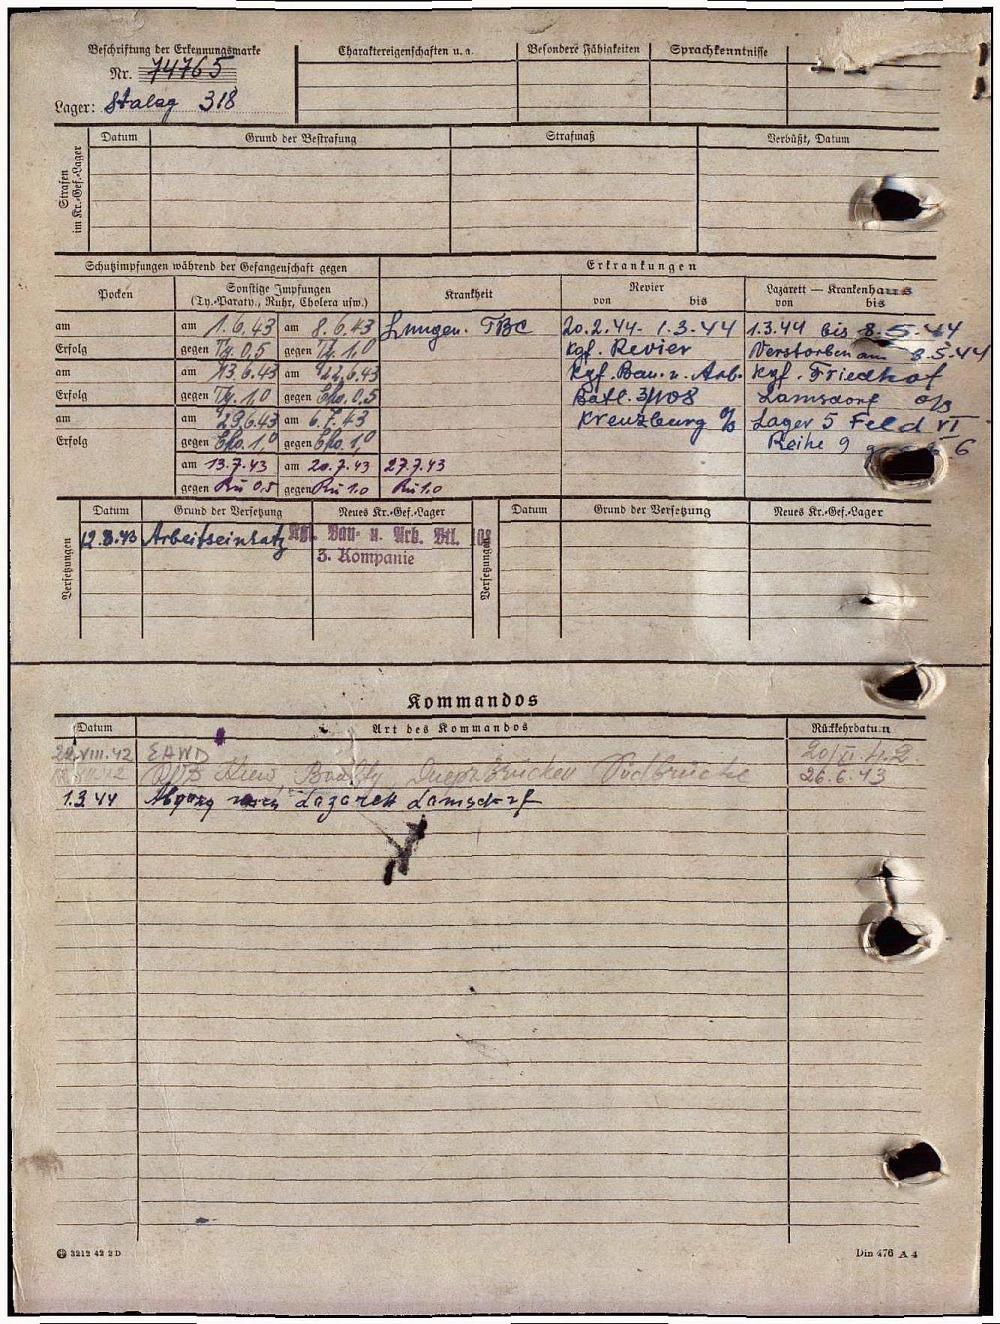 Beschriftung der Erkennungsmarke
Nr. 74765
Lager: Stalag 318
Charaktereigenschaften u. a.
Besondere Fähigkeiten
Sprachkenntnisse
Strafen im Kr.-Gef.-Lager
Datum Grund der Bestrafung Strafmaß Verbüßt, Datum
Schutzimpfungen während der Gefangenschaft gegen
Erkrankungen
Pocken
Sonstige Impfungen
(Ty.-Paraty., Ruhr, Cholera usw.)
Krankheit
Revier
von bis
Lazarett — Krankenhaus
von bis
am am 1.6.43 am 8.6.43 Lungen. TBC 20.2.44 - 1.3.44 1.3.44 bis 8.5.44
Erfolg gegen Ty. 0,5 gegen Ty. 1,0 Kgf. Revier Verstorben am 8.5.44
am am 13.6.43 am 22.6.43 Kgf. Bau- u. Arb. Kgf. Friedhof
Erfolg gegen Ty. 1,0 gegen Cho. 0,5 Batl. 3/108 Lamsdorf o/s
am am 29.6.43 am 6.7.43 Kreuzburg o/s Lager 5 Feld VI
Erfolg gegen Cho. 1,0 gegen Cho. 1,0 Reihe 9 6
am 13.7.43 am 20.7.43 27.7.43
gegen Ru 0,5 gegen Ru 1.0 Ru 1.0
Versetzungen
Datum Grund der Versetzung Neues Kr.-Gef.-Lager
12.8.43 Arbeitseinsatz Kgf. Bau- u. Arb. Btl. 108
3. Kompanie
Versetzungen
Datum Grund der Versetzung Neues Kr.-Gef.-Lager
Kommandos
Datum Art des Kommandos Rückkehrdatum
22.VIII.42 EAWD 20/XI.42
Kiew Dneprbrücken Südbrücke 26.6.43
1.3.44 Abgang nach Lazarett Lamsdorf
3212 42 2 D
Din 476 A 4